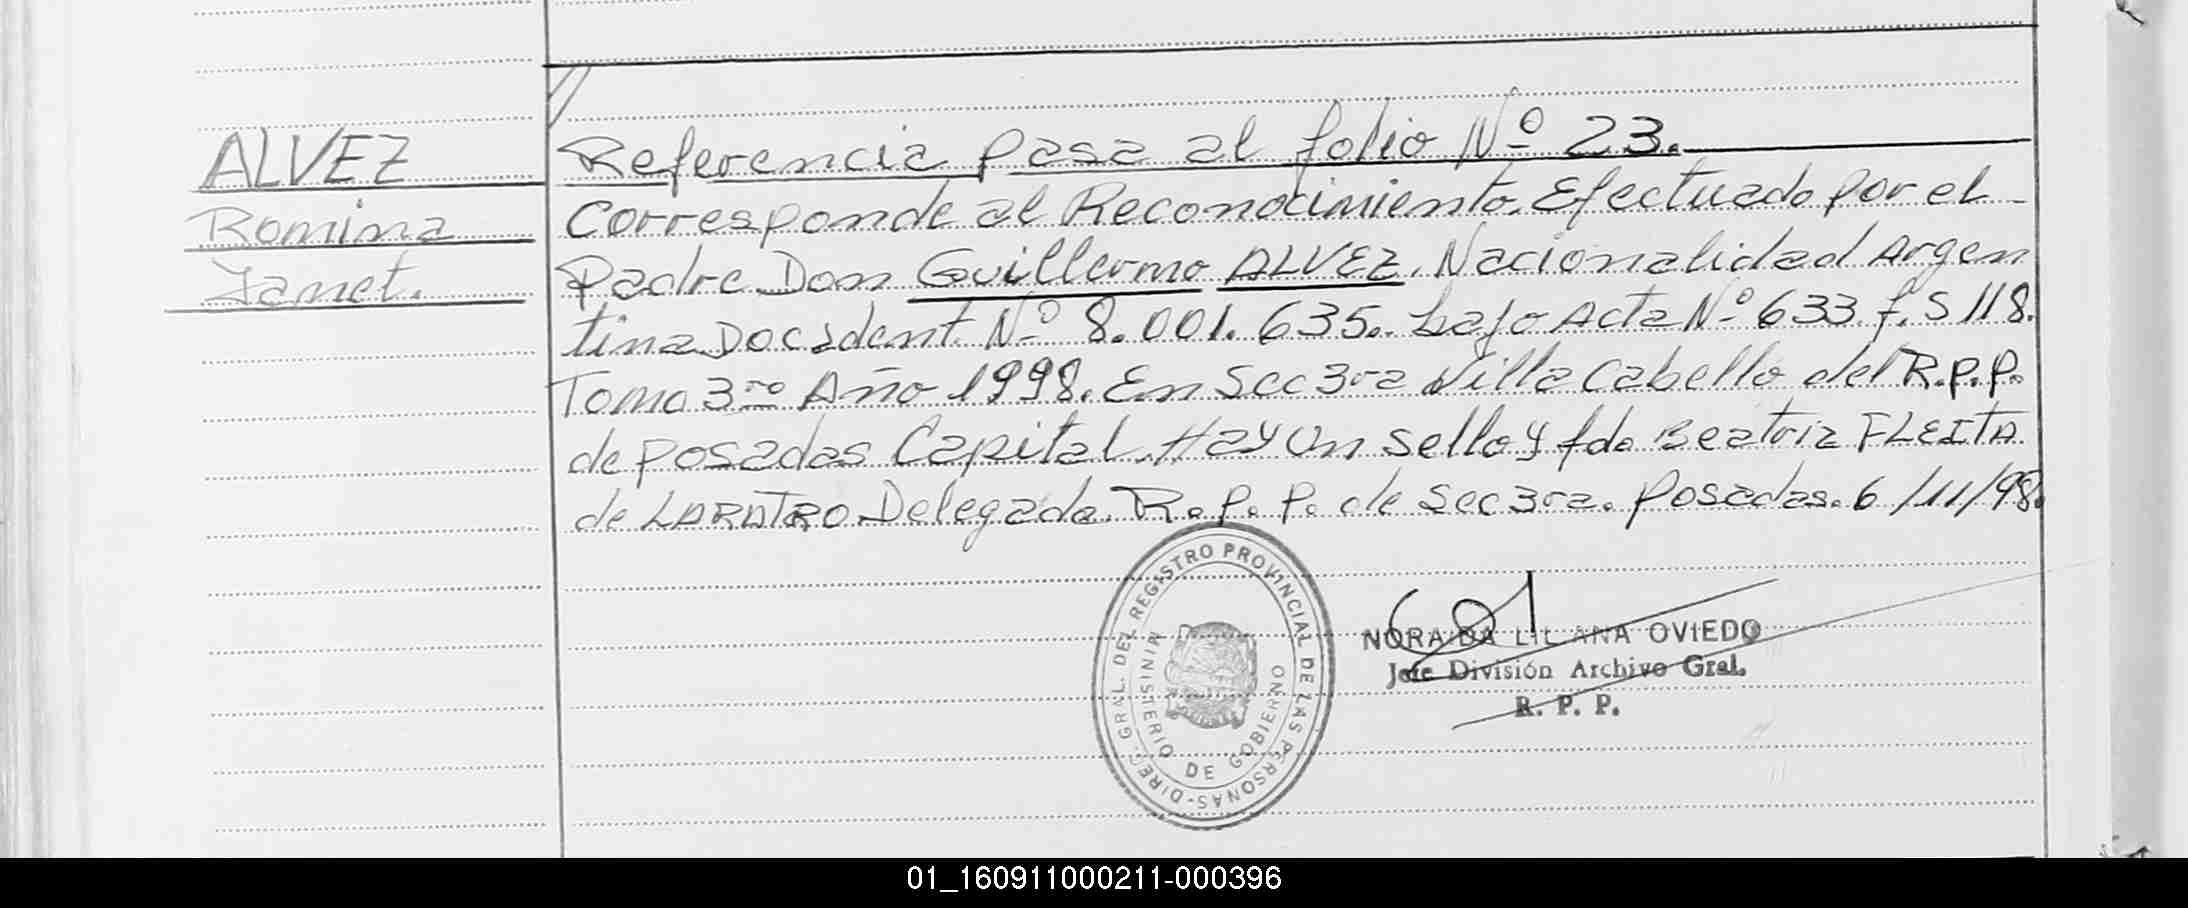 ALVEZ
Romina
Janet.
Referencia pasa al folio Nº 23.
Corresponde al Reconocimiento. Efectuado por el
Padre Don Guillermo ALVEZ. Nacionalidad Argen
tina Doc ident. Nº 8.001.635. bajo Acta Nº 633 f. S 118.
Tomo 3ro Año 1998. En Secc 3ra Villa Cabello del R.P.P.
de Posadas Capital. Hay un sello y fdo Beatriz FLEITA
de LARATRO Delegada. R.P.P. de Sec 3ra. Posadas. 6/11/98.
DIREC. GRAL. DEL REGISTRO PROVINCIAL DE LAS PERSONAS-
MINISTERIO DE GOBIERNO
NORAIDA LILIANA OVIEDO
Jefe División Archivo Gral.
R. P. P.
01_160911000211-000396